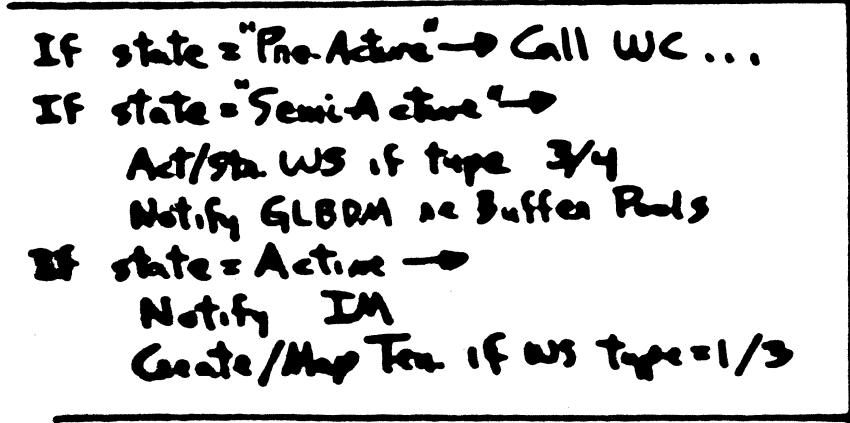 If state="Pre-Active"→ Call WC ...
If state="Semi-Active"→
Act/Sta. WS if type 3/4
Notify GLBDM re Buffer Pools
If state=Active →
Notify IM
Create/Map Ter. if WS type=1/3